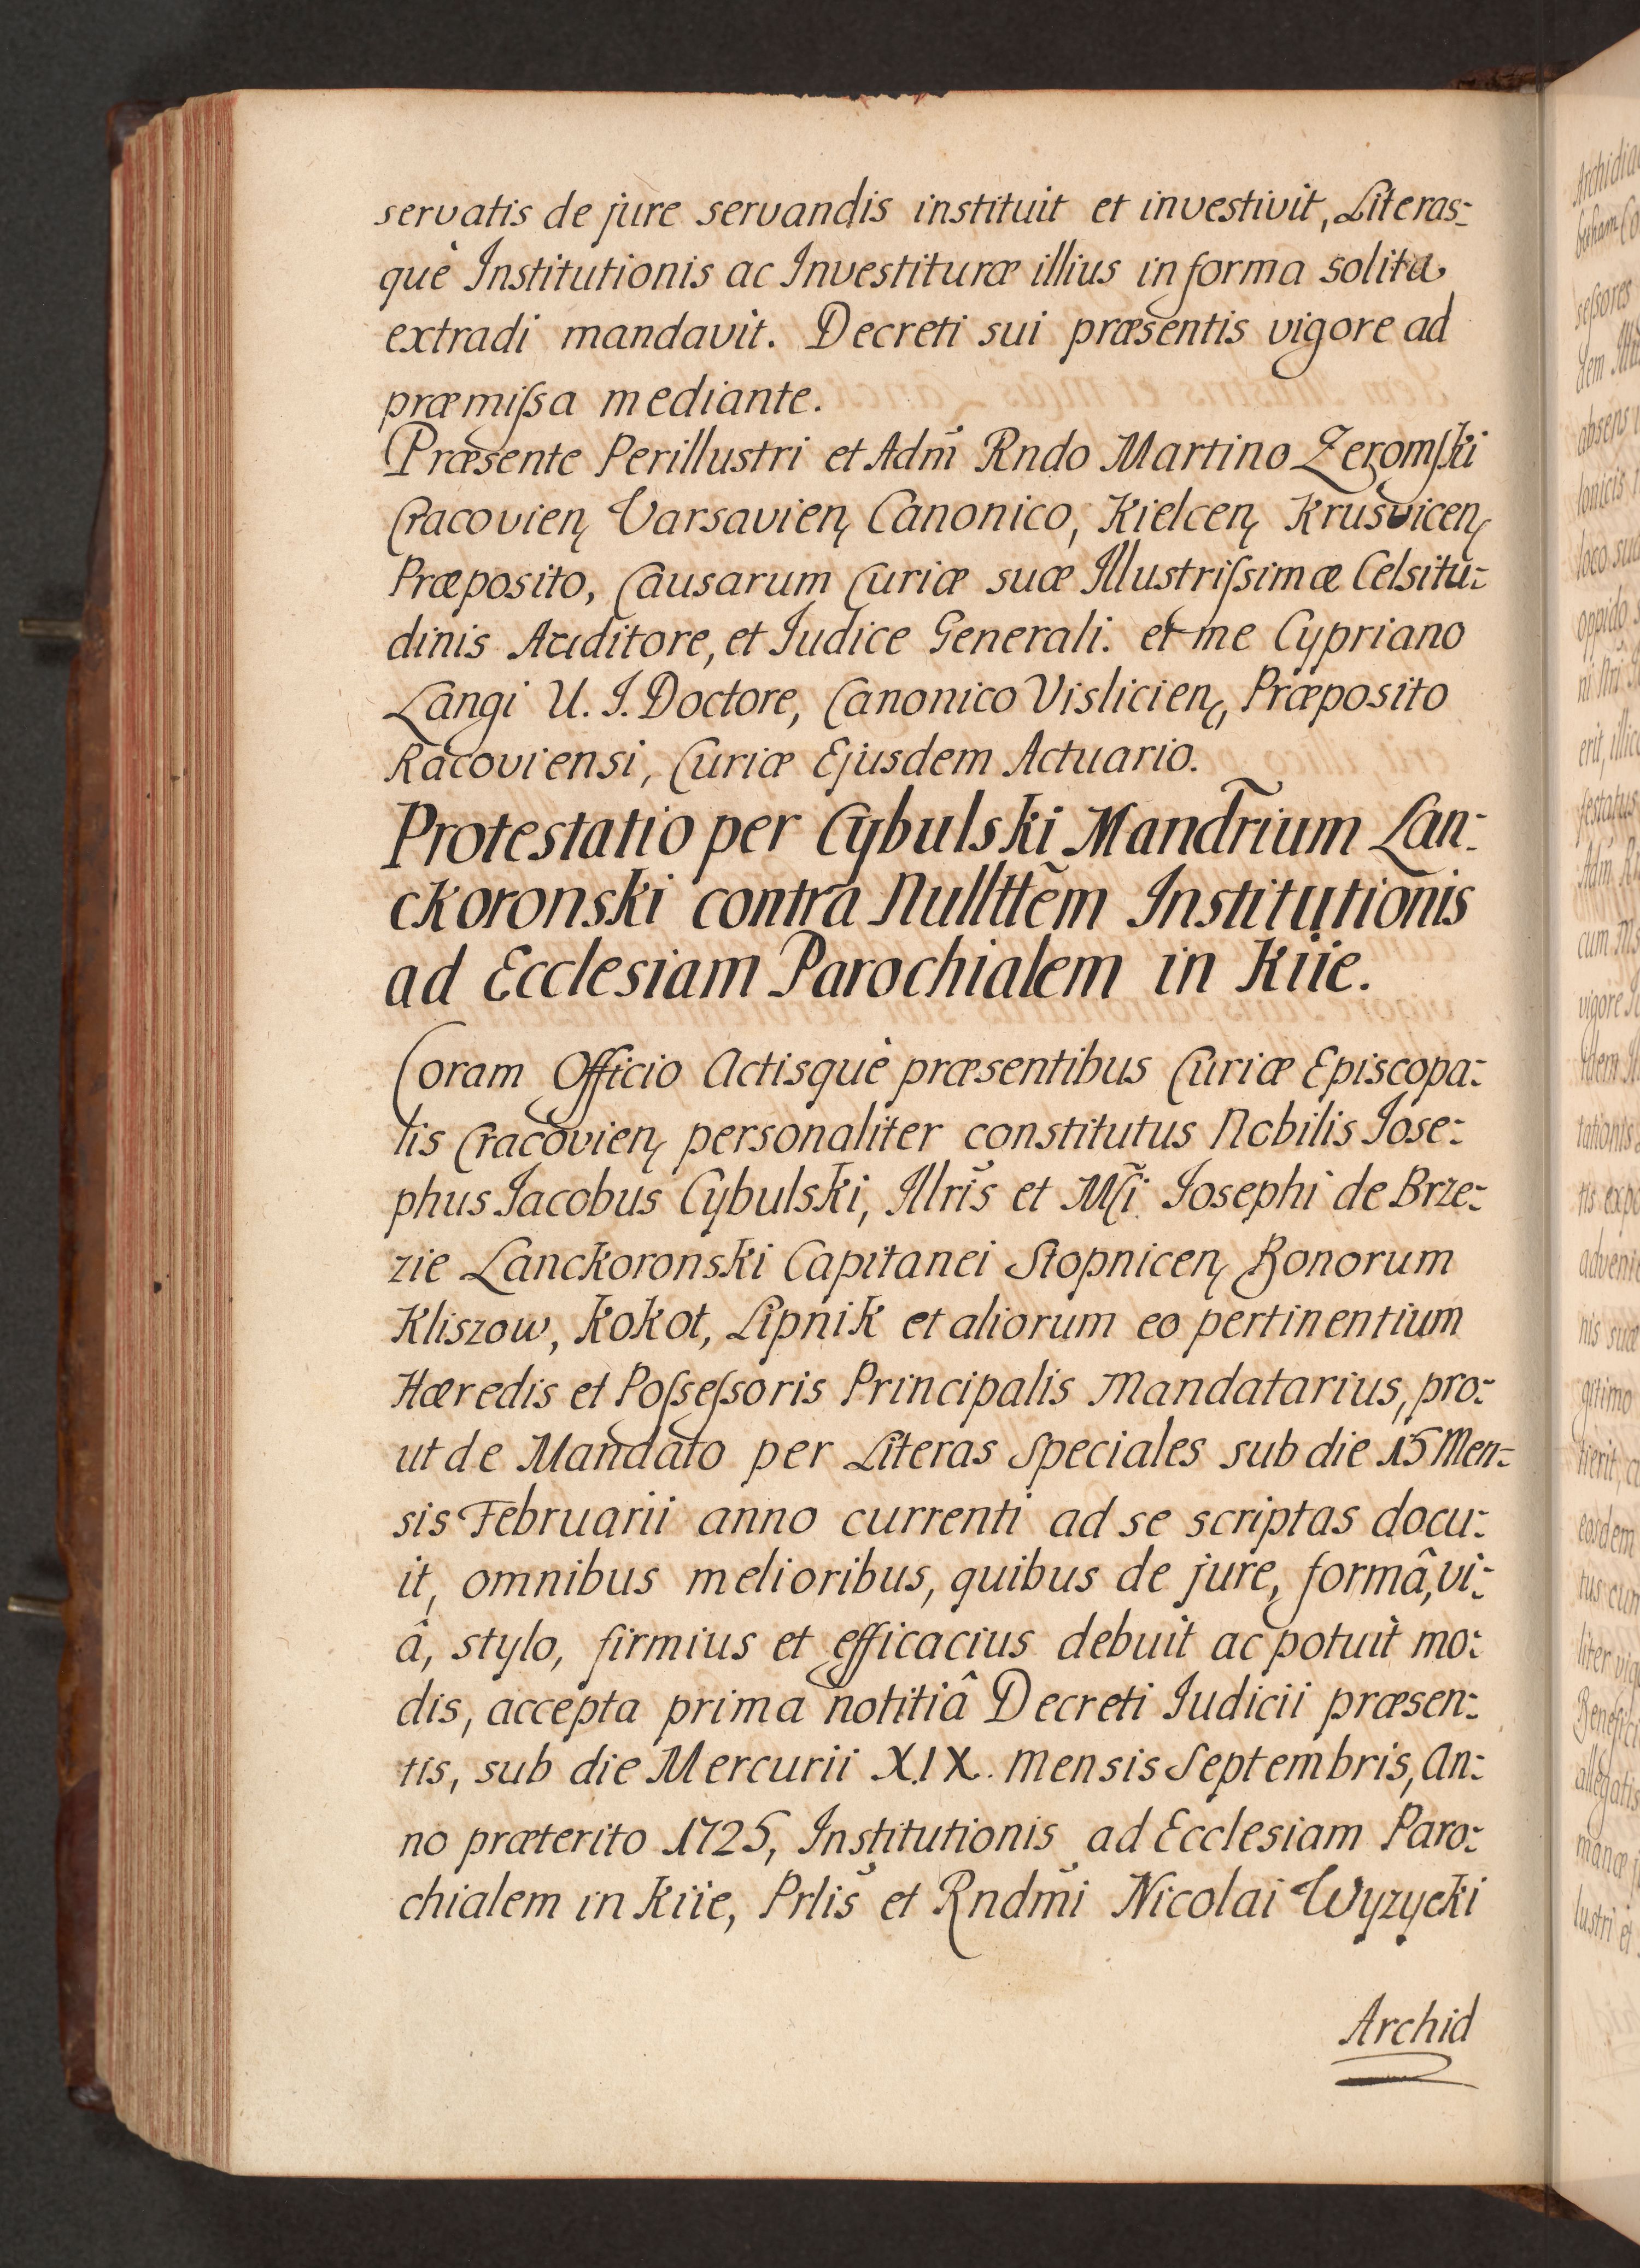 servatis de jure servandis instituit et investivit, Literas-
què Institutionis ac Investituræ illius in forma solita
extradi mandavit. Decreti sui præsentis vigore ad
præmiſsa mediante.
Præsente Perillustri et Adm̃ Rndo Martino Zeromſki
Cracovień Varsavień Canonico, Kielceń Krusviceń
Præposito, Causarum Curiæ suæ Illustriſsimæ Celsitu-
dinis Auditore, et Iudice Generali. et me Cypriano
Langi U. I. Doctore, Canonico Vislicień, Præposito
Racoviensi, Curiæ Ejusdem Actuario.
Protestatio per Cybulski Mandr̃ium Lan-
ckoronski contra Nullttẽm Institutionis
ad Ecclesiam Parochialem in Kiie.
Coram Officio Actisquè præsentibus Curiæ Episcopa-
lis Cracovień personaliter constitutus Nobilis Iose-
phus Iacobus Cybulski, Illrĩs et Mci Iosephi de Brze-
zie Lanckoronski Capitanei Stopniceń Bonorum
Kliszow, Kokot, Lipnik et aliorum eo pertinentium
Hæredis et Poſseſsoris Principalis Mandatarius, pro-
ut de Mandato per Literas Speciales sub die 15 Men-
sis Februarii anno currenti ad se scriptas docu-
it, omnibus melioribus, quibus de jure, formâ, vi-
â, stylo, firmius et efficacius debuit ac potuit mo-
dis, accepta prima notitiâ Decreti Iudicii præsen-
tis, sub die Mercurii XIX. Mensis Septembris, An-
no præterito 1725, Institutionis ad Ecclesiam Paro-
chialem in Kiie, Prlis̃ et Rndm̃i Nicolai Wyzycki
Archid